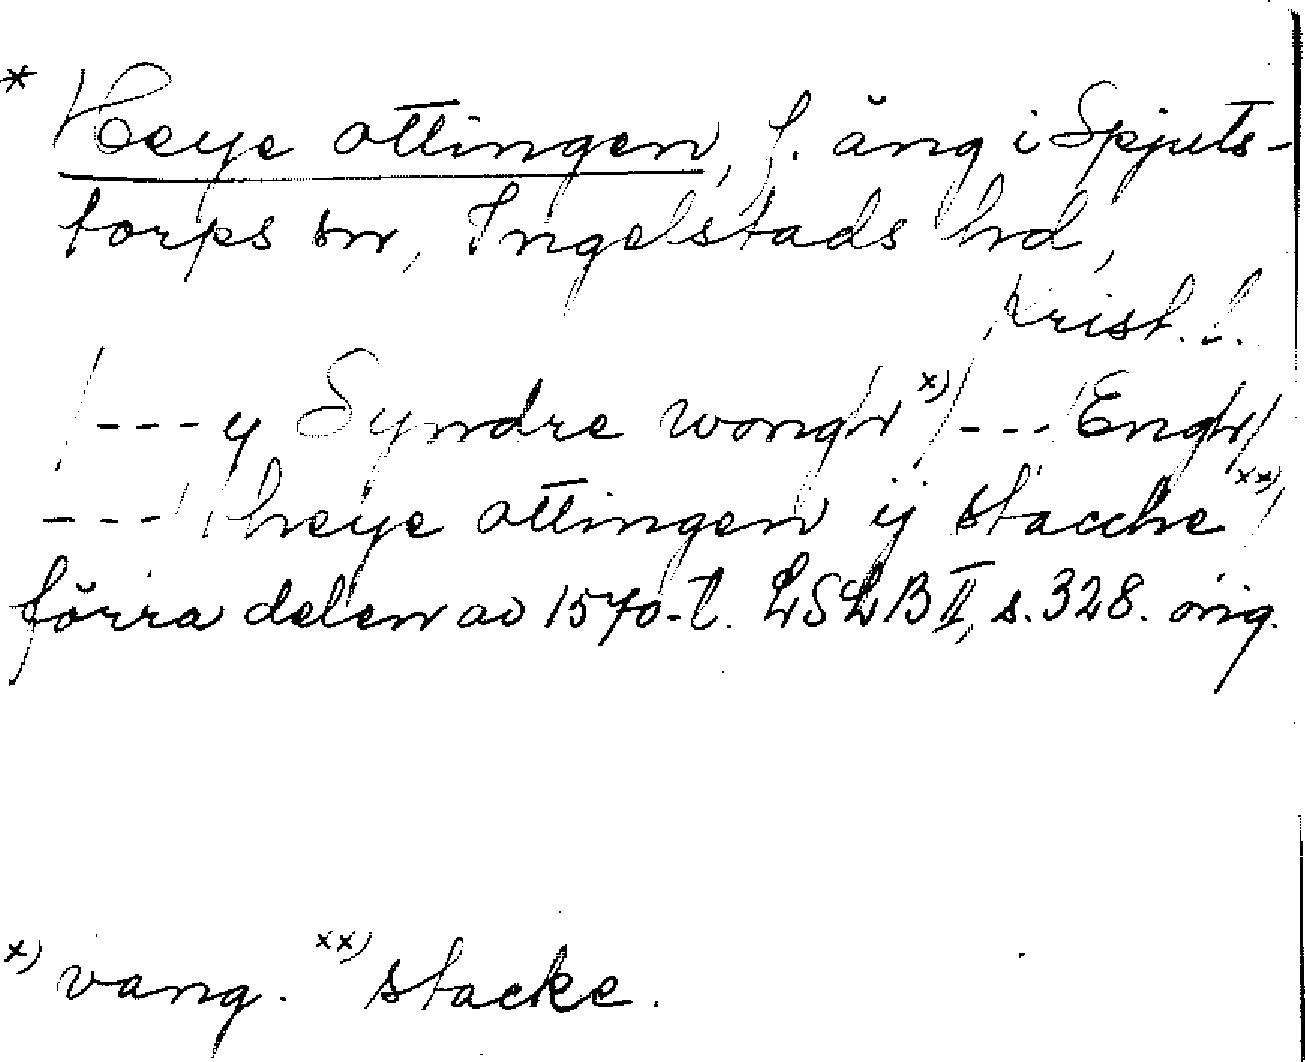 * Heye ottingen, f. äng i Spjuts-
torps sn, Ingelstads hd,
Krist. l.
/--- y Syndre wongh x)/--- Engh/
---/ heye ottingen ij stacche xx)/
förra delen av 1570-t. LSLB II, s. 328. orig.
x) vang. xx) stacke.